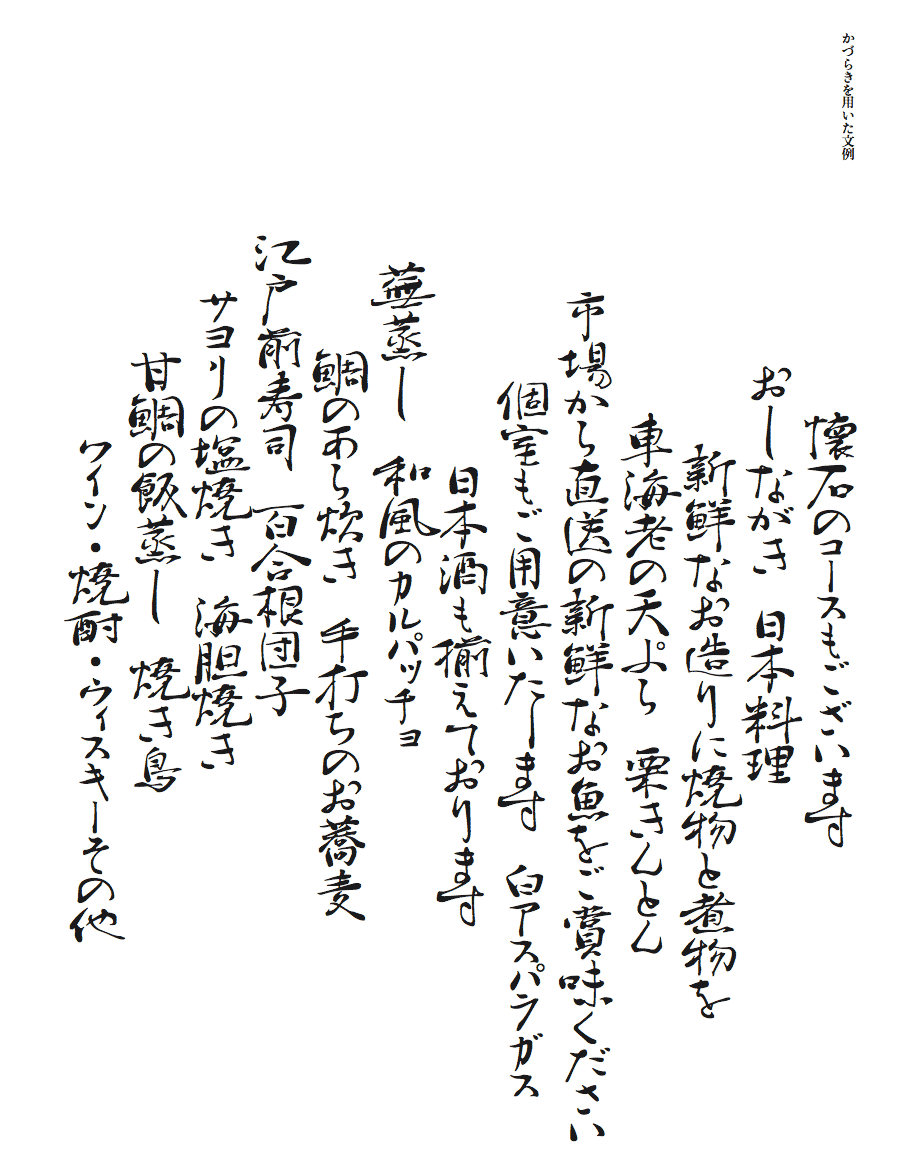 かづらきを用いた文例
懐石のコースもございます
おしながき　日本料理
新鮮なお造りに焼物と煮物を
車海老の天ぷら　栗きんとん
市場から直送の新鮮なお魚をご賞味ください
個室もご用意いたします　白アスパラガス
日本酒も揃えております
蕪蒸し　和風のカルパッチョ
鯛のあら炊き　手打ちのお蕎麦
江戸前寿司　百合根団子
サヨリの塩焼き　海胆焼き
甘鯛の飯蒸し　焼き鳥
ワイン・焼酎・ウィスキーその他